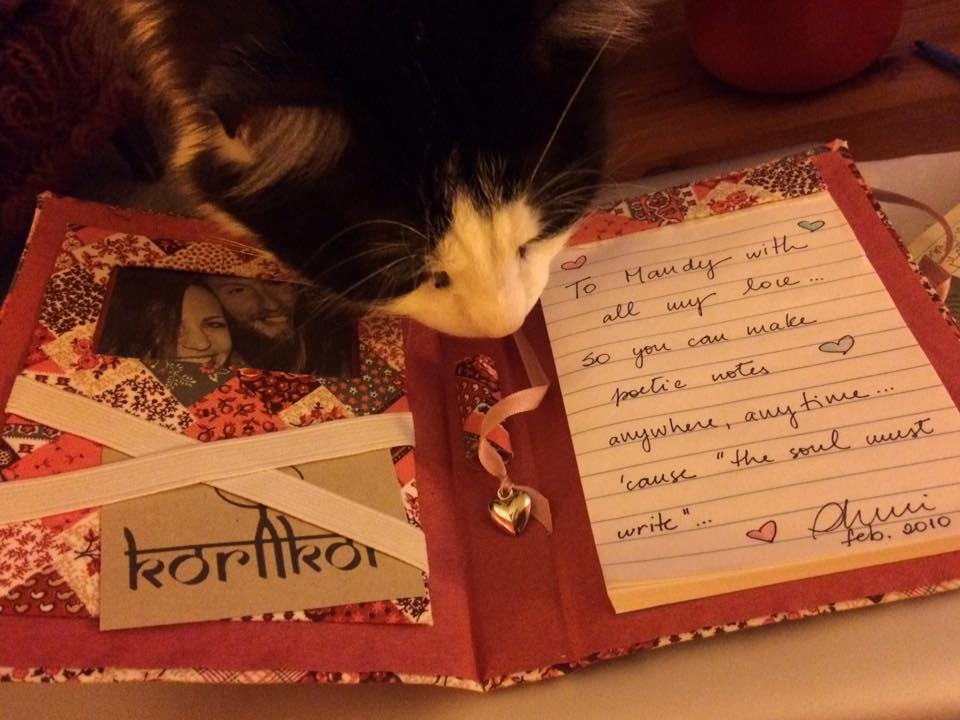 To Mandy with
all my love...
so you can make
poetic notes
anywhere, anytime...
'cause "the soul must
write"...
feb. 2010